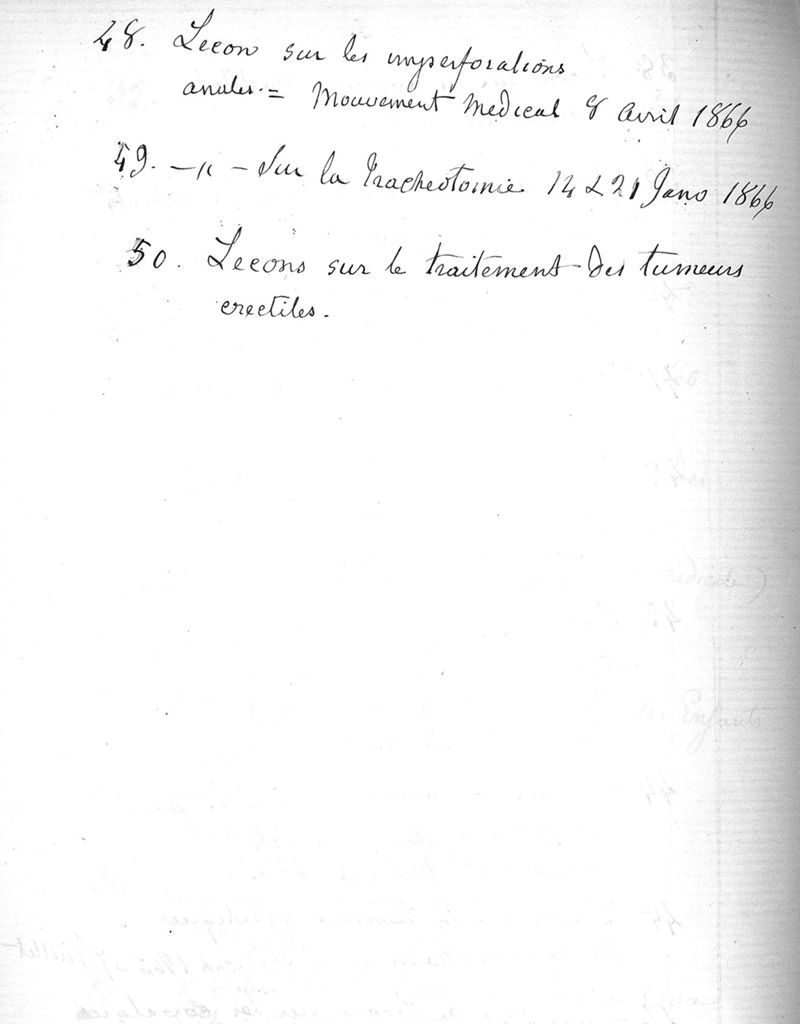 48. Lecon sur les imperforations
anales. = Mouvement Medical 8 Avril 1866
49. —〃— Sur la Tracheotomie 14 & 21 Janv 1866
50. Lecons sur le traitement des tumeurs
erectiles.